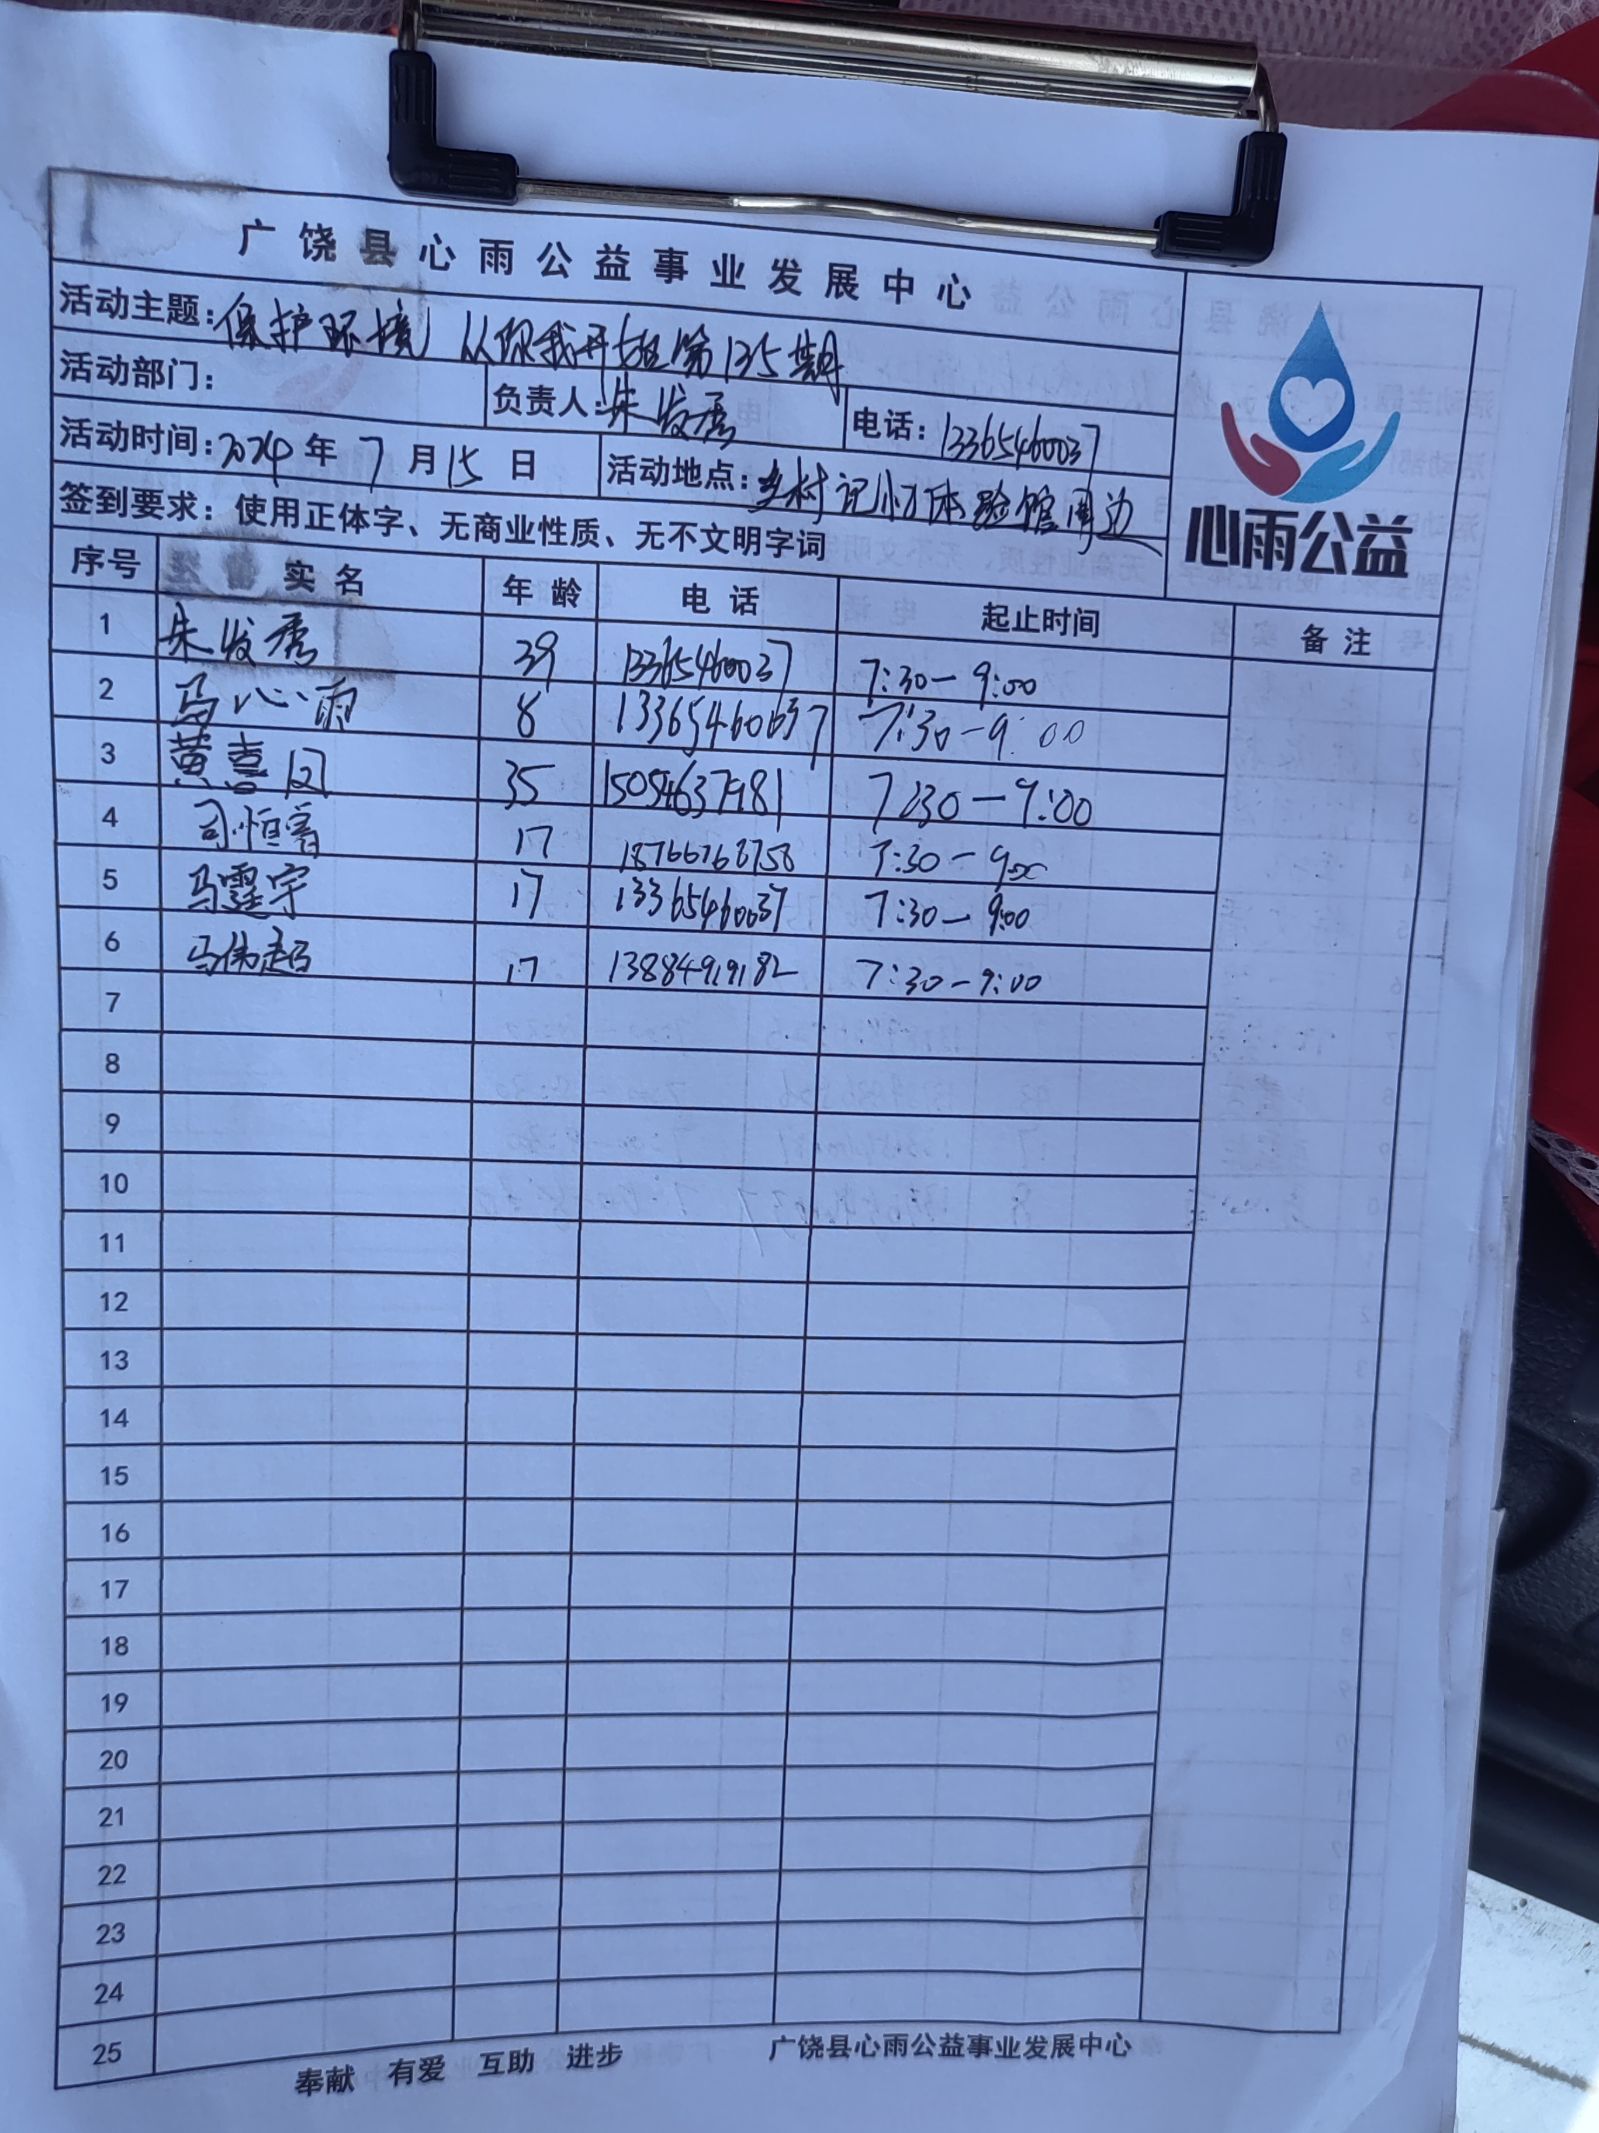 广饶县心雨公益事业发展中心
活动主题:保护环境 从你我开始第135期
活动部门: 负责人:朱发秀 电话:13365460037
活动时间:2024年7月15日 活动地点:乡村记忆体验馆周边
签到要求:使用正体字、无商业性质、无不文明字词
心雨公益
序号 实名 年龄 电话 起止时间 备注
1 朱发秀 39 13365460037 7:30-9:00
2 马心雨 8 13365460037 7:30-9:00
3 黄喜 35 15054637981 7:30-9:00
4 司恒 17 18766768758 7:30-9:00
5 马霆宇 17 13365460037 7:30-9:00
6 马伟超 17 13884919182 7:30-9:00
7
8
9
10
11
12
13
14
15
16
17
18
19
20
21
22
23
24
25
奉献 有爱 互助 进步 广饶县心雨公益事业发展中心